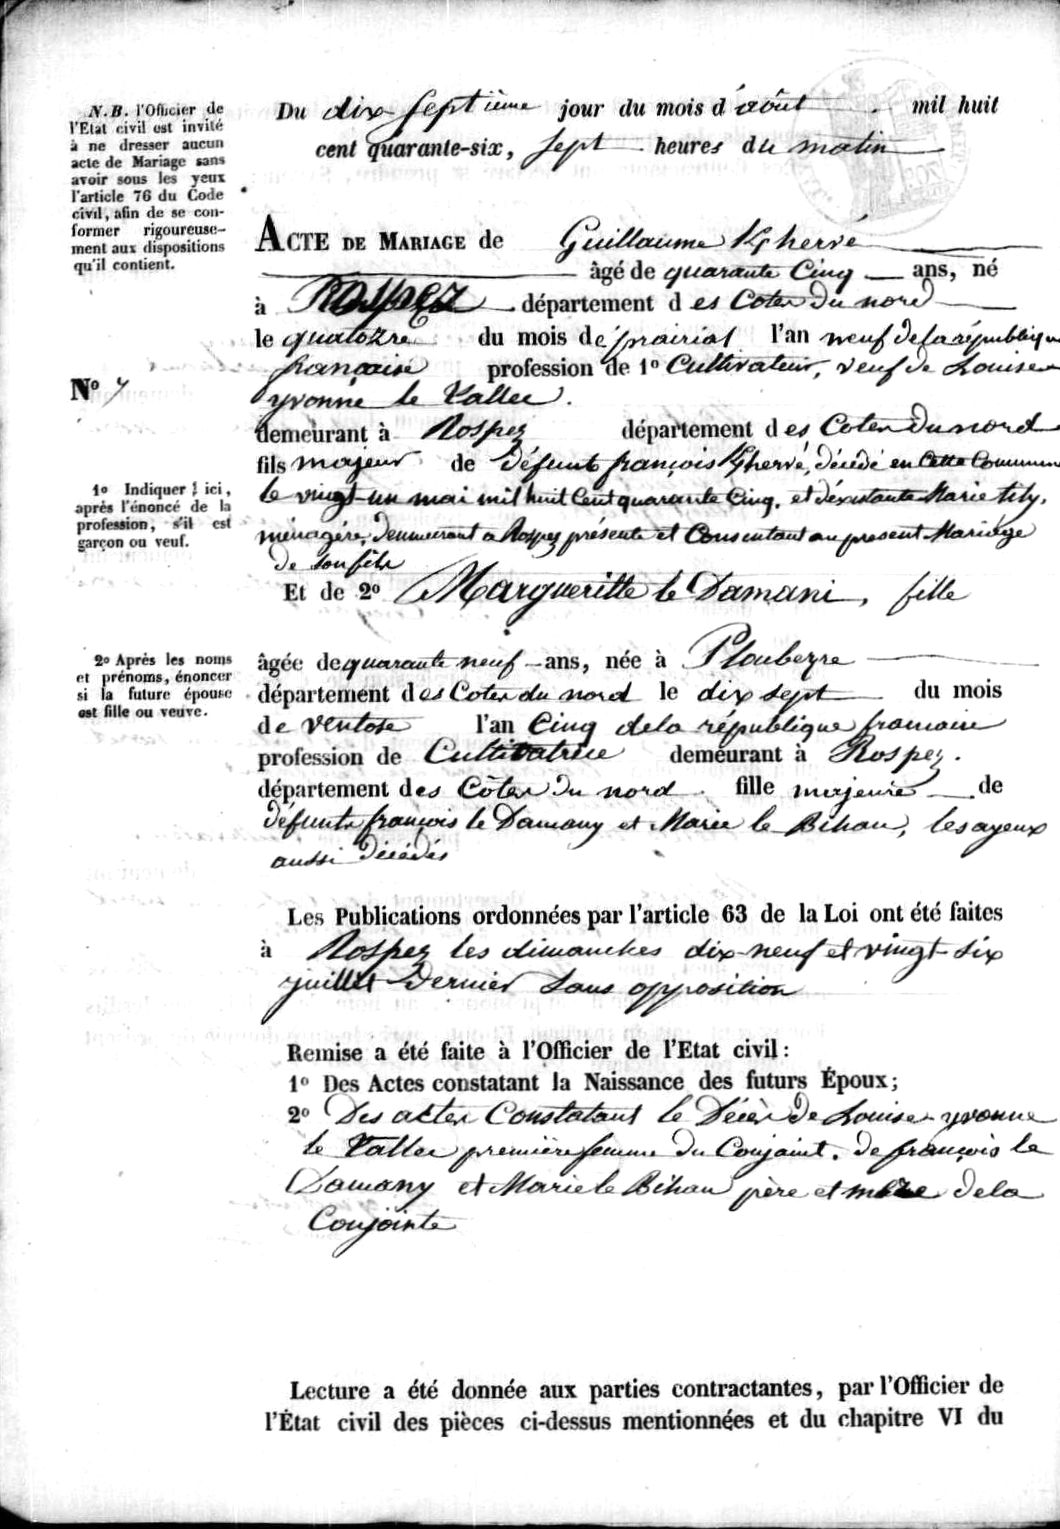 N.B. l'Officier de
l'Etat civil est invité
à ne dresser aucun
acte de Mariage sans
avoir sous les yeux
l'article 76 du Code
civil, afin de se con-
former rigoureuse-
ment aux dispositions
qu'il contient.
Du dix septième jour du mois d'août mil huit
cent quarante-six, sept heures du matin
ACTE DE MARIAGE de Guillaume Kghervé
âgé de quarante Cinq ans, né
à Rospez département des Cotes du nord
le quatorze du mois de prairial l'an neuf de la république
française profession de 1º Cultivateur, veuf de Louise
Nº 7
yvonne le Vallee.
demeurant à Rospez département des Cotes du nord
fils majeur de défunt françois Kghervé, décédé en Cette Commune
le vingt-un mai mil huit Cent quarante Cinq, et déxistante Marie
ménagère, demeurant a Rospez présente et Consentant au present Mariage
de son fils
1º Indiquer ici,
après l'énoncé de la
profession, s'il est
garçon ou veuf.
Et de 2º Margueritte le Damani, fille
âgée de quarante neuf ans, née à Ploubezre
département des Cotes du nord le dix sept du mois
de ventose l'an Cinq de la république francaise
profession de Cultivatrice demeurant à Rospez.
département des Côtes du nord fille majeure de
défunts françois le Damany et Marie le Bihan, les ayeux
aussi décédés
2º Après les noms
et prénoms, énoncer
si la future épouse
est fille ou veuve.
Les Publications ordonnées par l'article 63 de la Loi ont été faites
à Rospez les dimanches dix-neuf et vingt-six
juillet dernier sans opposition
Remise a été faite à l'Officier de l'Etat civil :
1º Des Actes constatant la Naissance des futurs Époux;
2º Des actes Constatant le Décès de Louise yvonne
le Vallee première femme du Conjoint. de françois le
Damany et Marie le Bihan père et mère de la
Conjointe
Lecture a été donnée aux parties contractantes, par l'Officier de
l'État civil des pièces ci-dessus mentionnées et du chapitre VI du